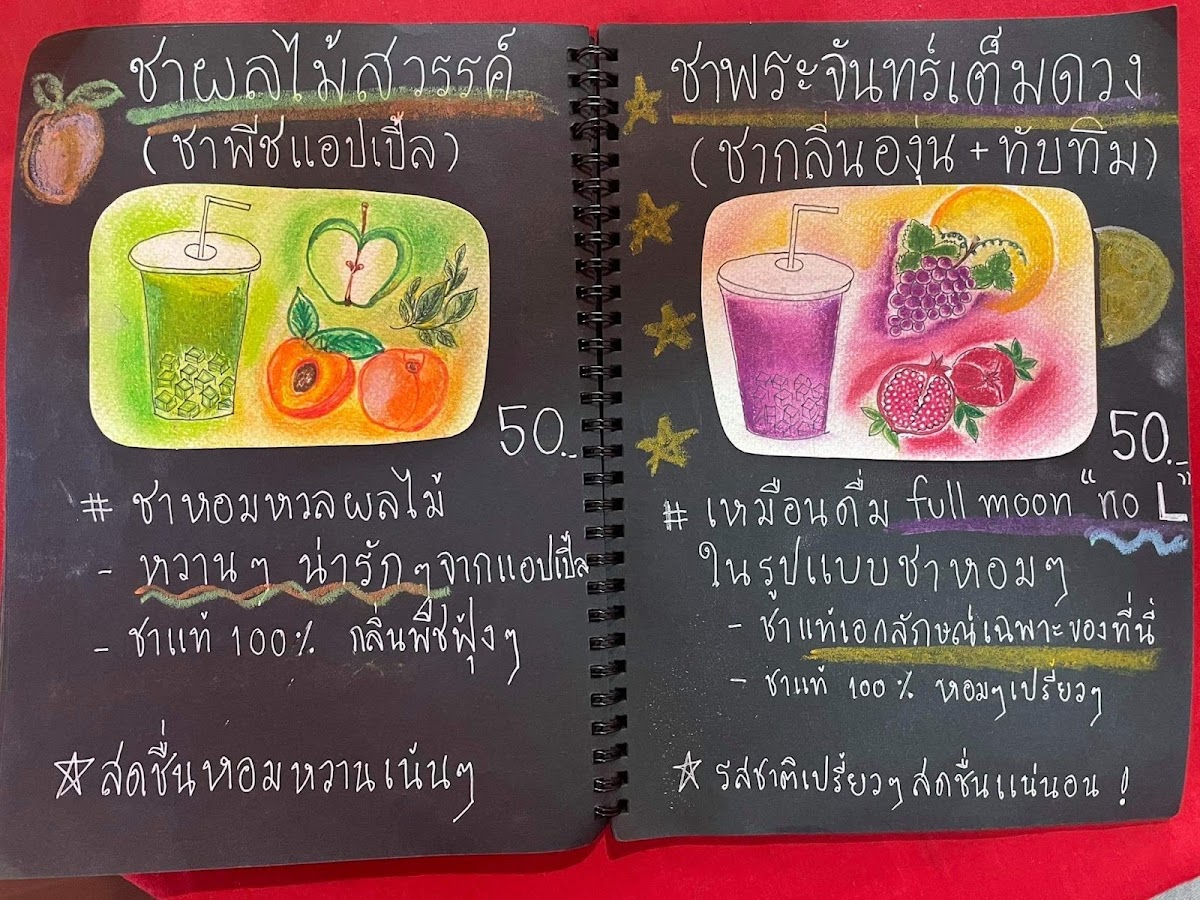 ชาผลไม้สวรรค์
(ชาพีชแอปเปิ้ล)
50.-
# ชาหอมหวลผลไม้
- หวานๆ น่ารักๆจากแอปเปิ้ล
- ชาแท้ 100% กลิ่นพีชฟุ้งๆ
☆สดชื่นหอมหวานเน้นๆ
ชาพระจันทร์เต็มดวง
(ชากลิ่นองุ่น+ทับทิม)
50.-
# เหมือนดื่ม full moon "no L"
ในรูปแบบชาหอมๆ
- ชาแท้เอกลักษณ์เฉพาะของที่นี่
- ชาแท้ 100% หอมๆเปรี้ยวๆ
☆ รสชาติเปรี้ยวๆสดชื่นแน่นอน !